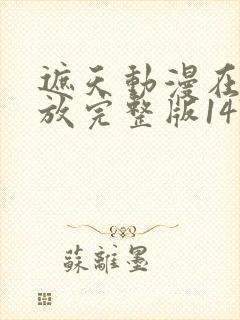 遮天動漫在
放完整版14
蘇離墨